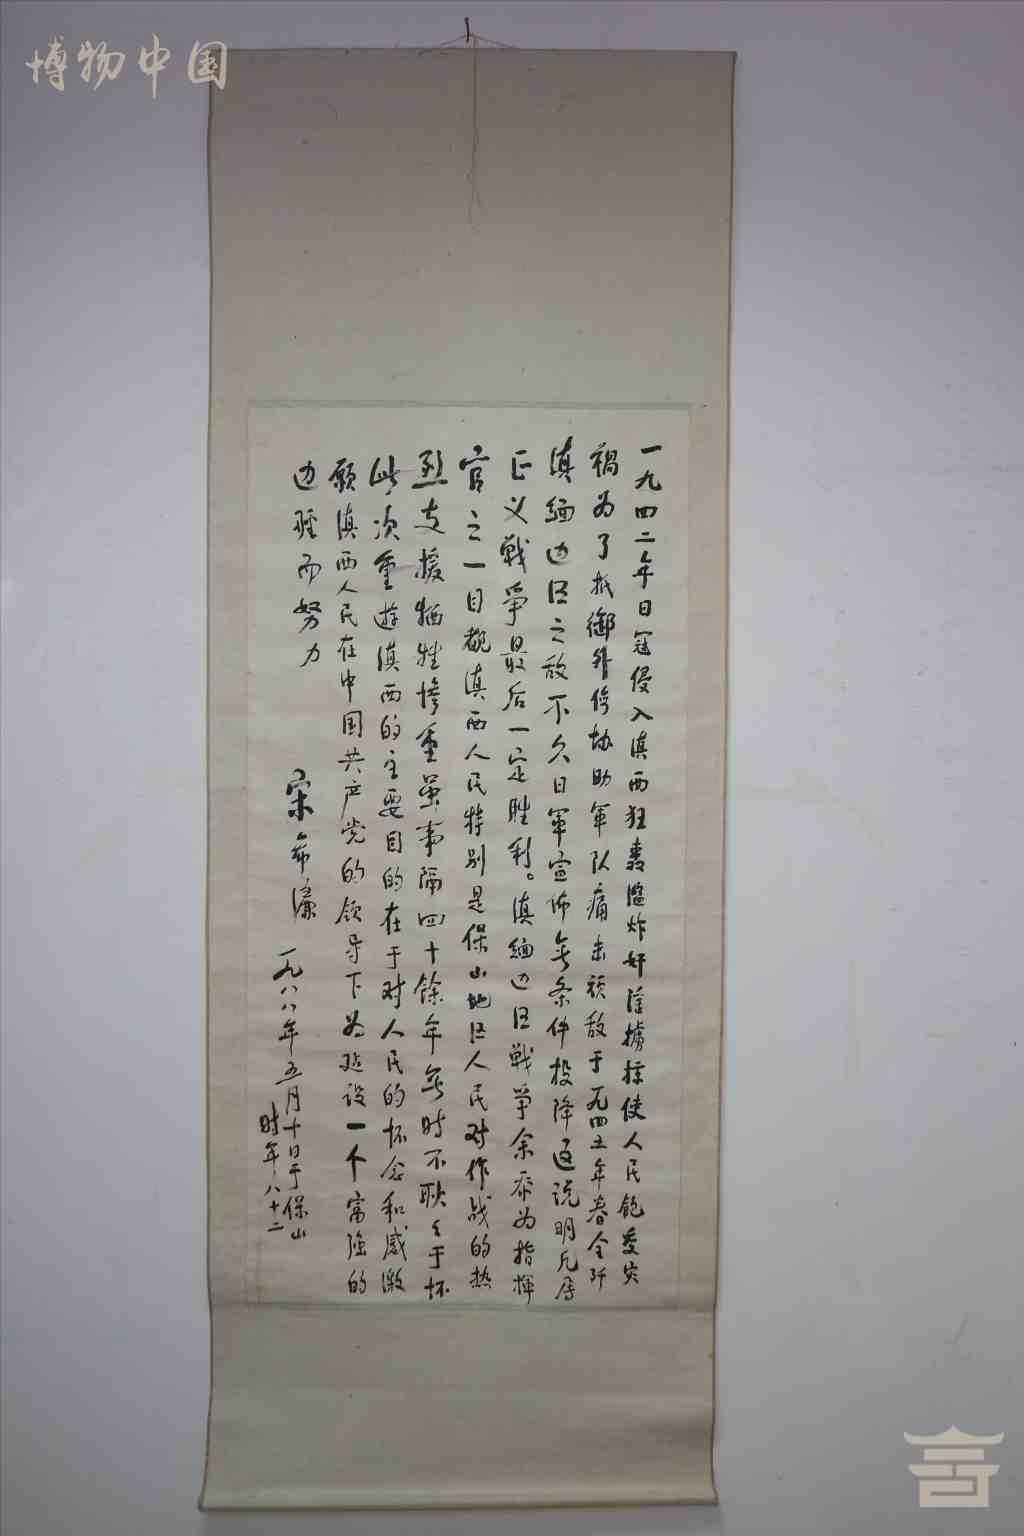 博物中国
一九四二年日寇侵入滇西狂轰滥炸奸淫掳掠使人民饱受灾
祸为了抵御外侮协助军队痛击顽敌于一九四五年春全歼
滇缅边区之敌不久日军宣佈无条件投降这说明凡属
正义战争最后一定胜利。滇缅边区战争余忝为指挥
官之一目睹滇西人民特别是保山地区人民对作战的热
烈支援牺牲惨重虽事隔四十馀年无时不耿耿于怀
此次重游滇西的主要目的在于对人民的怀念和感激
愿滇西人民在中国共产党的领导下为建设一个富强的
边疆而努力
宋希濂 一九八八年五月十日于保山
时年八十二